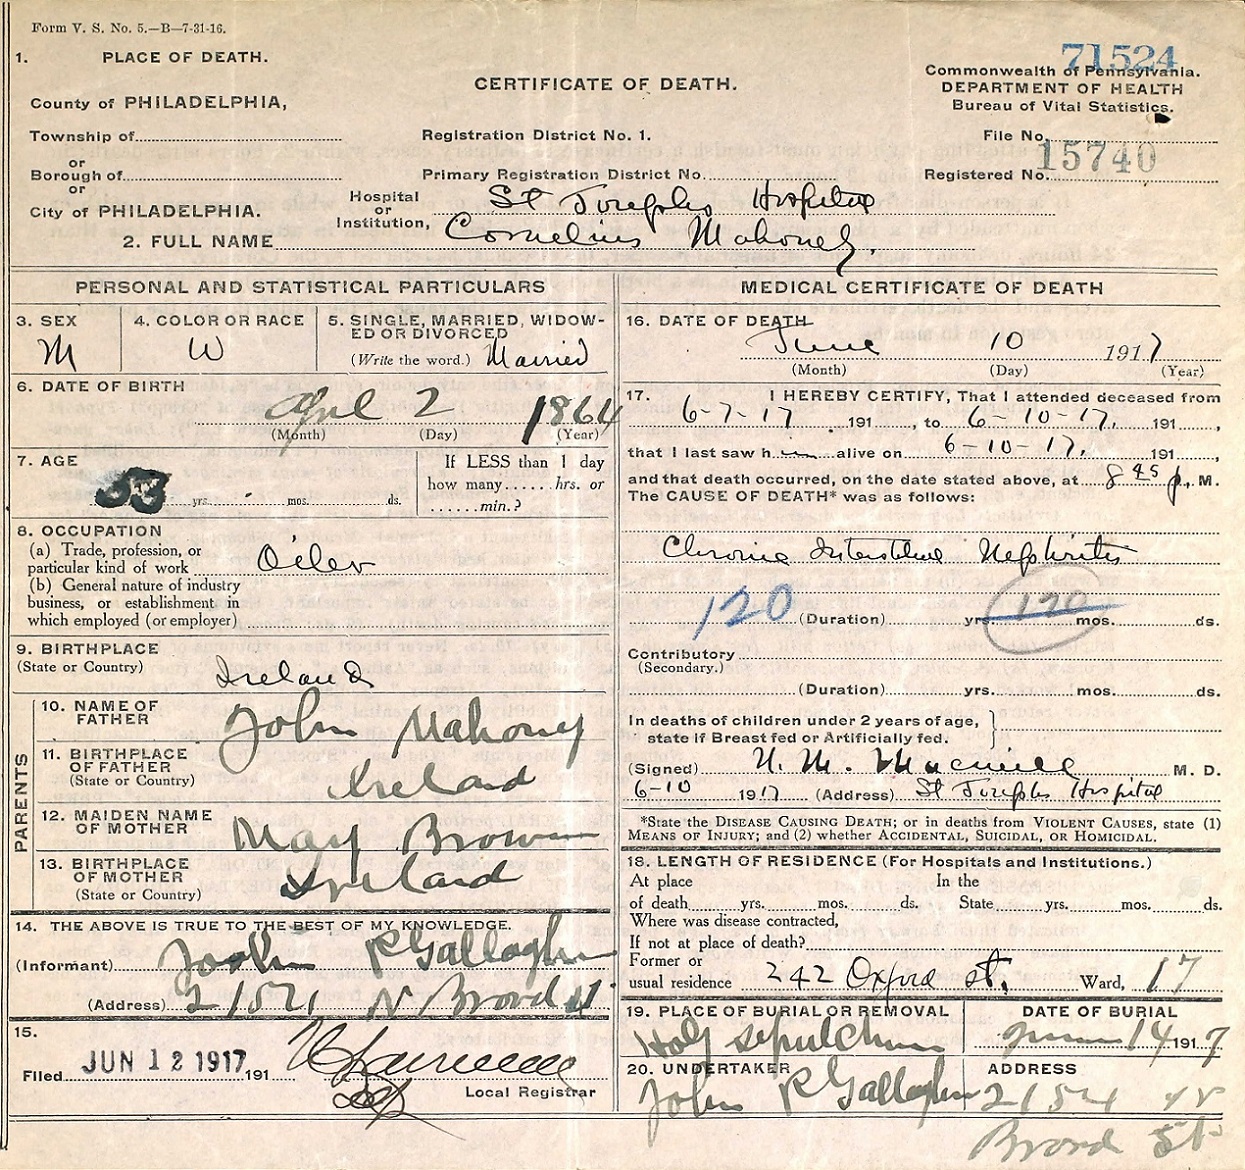 Form V. S. No. 5.—B—7-31-16.
71524
1. PLACE OF DEATH.
CERTIFICATE OF DEATH.
Commonwealth of Pennsylvania.
DEPARTMENT OF HEALTH
Bureau of Vital Statistics.
County of PHILADELPHIA,
Township of
Registration District No. 1.
File No.
or
Borough of
Primary Registration District No.
Registered No. 15740
or
City of PHILADELPHIA.
Hospital or Institution, St Josephs Hospital
2. FULL NAME Cornelius Mahoney.
PERSONAL AND STATISTICAL PARTICULARS
3. SEX
M
4. COLOR OR RACE
W
5. SINGLE, MARRIED, WIDOW-
ED OR DIVORCED
(Write the word.) Married
6. DATE OF BIRTH
April 2 1864
(Month) (Day) (Year)
7. AGE
yrs. mos. ds.
If LESS than 1 day
how many hrs. or
min.?
8. OCCUPATION
(a) Trade, profession, or
particular kind of work Oiler
(b) General nature of industry
business, or establishment in
which employed (or employer)
9. BIRTHPLACE
(State or Country) Ireland
PARENTS
10. NAME OF
FATHER John Mahoney
11. BIRTHPLACE
OF FATHER
(State or Country) Ireland
12. MAIDEN NAME
OF MOTHER May Brown
13. BIRTHPLACE
OF MOTHER
(State or Country) Ireland
14. THE ABOVE IS TRUE TO THE BEST OF MY KNOWLEDGE.
(Informant) John R Gallagher
(Address) 2152 N Broad st
15.
Filed JUN 12 1917 191
Local Registrar
MEDICAL CERTIFICATE OF DEATH
16. DATE OF DEATH
June 10 1917
(Month) (Day) (Year)
17. I HEREBY CERTIFY, That I attended deceased from
6-7-17 191, to 6-10-17, 191,
that I last saw h im alive on 6-10-17, 191,
and that death occurred, on the date stated above, at 8 45 p. M.
The CAUSE OF DEATH* was as follows:
Chronic Interstitial Nephritis
120 (Duration) yrs. 120 mos. ds.
Contributory
(Secondary.)
(Duration) yrs. mos. ds.
In deaths of children under 2 years of age,
state if Breast fed or Artificially fed.
(Signed) M. D.
6-10 1917 (Address) St Josephs Hospital
*State the DISEASE CAUSING DEATH; or in deaths from VIOLENT CAUSES, state (1)
MEANS OF INJURY; and (2) whether ACCIDENTAL, SUICIDAL, OR HOMICIDAL.
18. LENGTH OF RESIDENCE (For Hospitals and Institutions.)
At place In the
of death yrs. mos. ds. State yrs. mos. ds.
Where was disease contracted,
If not at place of death?
Former or
usual residence 242 Oxford st, Ward, 17
19. PLACE OF BURIAL OR REMOVAL
Holy Sepulchre
DATE OF BURIAL
June 14 1917
20. UNDERTAKER
John R Gallagher
ADDRESS
2154 N
Broad St